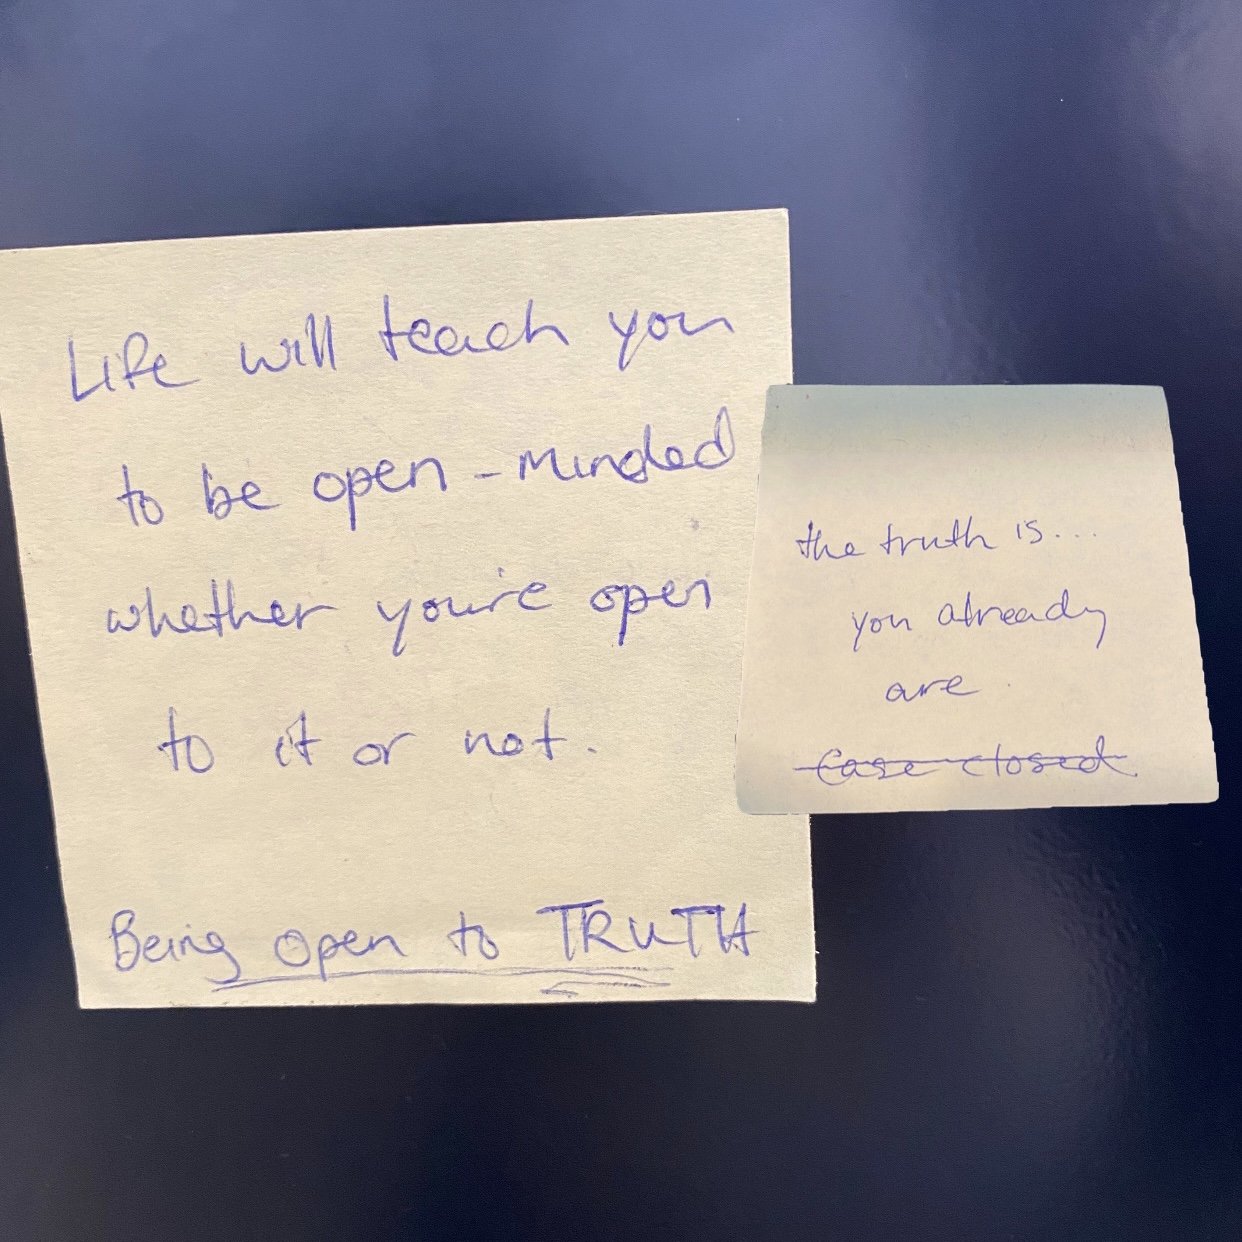 Life will teach you
to be open-minded
whether you're open
to it or not.
Being open to TRUTH
the truth is...
you already
are.
Case closed.